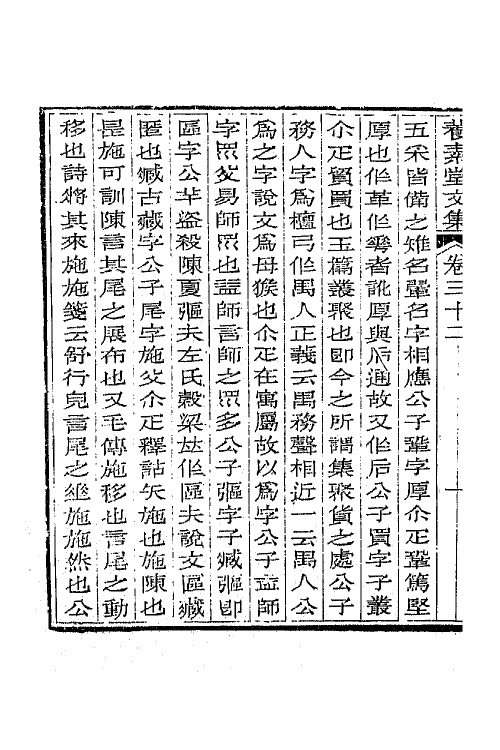 養素堂文集 卷三十二 一
五采皆備之雉名翬名字相應公子鞏字厚尒疋鞏篤堅
厚也作革作翬者訛厚與后通故又作后公子買字子叢
尒疋貿買也玉篇叢聚也卽今之所謂集聚貨之處公子
務人字爲檀弓作禺人正義云禺務聲相近一云禺人公
爲之字說文爲母猴也尒疋在寓屬故以爲字公子益師
字眾父易師眾也益師言師之眾多公子彄字子臧彄卽
區字公羊盜殺陳夏彄夫左氏穀梁竝作區夫說文區臧
匿也臧古藏字公子尾字施父尒疋釋詁矢施也施陳也
昆施可訓陳言其尾之展布也又毛傳施移也言尾之動
移也詩將其來施施箋云舒行皃言尾之䋈施施然也公